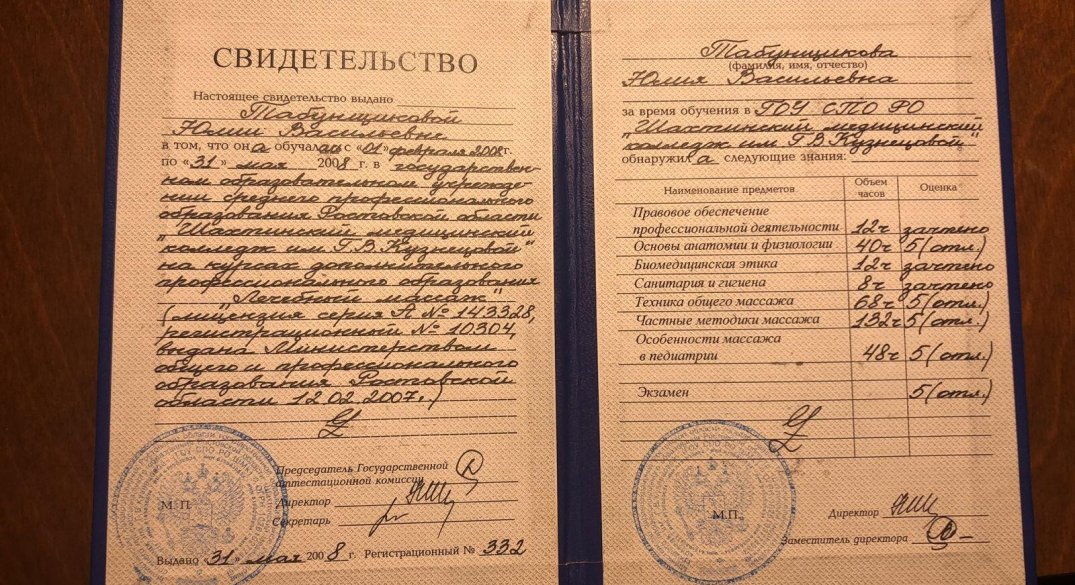 СВИДЕТЕЛЬСТВО
Настоящее свидетельство выдано
Табунщиковой
Юлии Васильевне
в том, что она обучалась с «01» февраля 2008г.
по «31» мая 2008 г. в государствен-
ном образовательном учрежде-
нии среднего профессионального
образования Ростовской области
"Шахтинский медицинский
колледж им. Г.В.Кузнецовой"
на курсах дополнительного
профессионального образования
"Лечебный массаж"
(лицензия серия А № 143328,
регистрационный № 10304,
выдана Министерством
общего и профессионального
образования Ростовской
области 12.02.2007.)
Председатель Государственной
аттестационной комиссии
М.П.
Директор
Секретарь
Выдано «31» мая 2008 г. Регистрационный № 332
Табунщикова
(фамилия, имя, отчество)
Юлия Васильевна
за время обучения в ГОУ СПО РО
"Шахтинский медицинский
колледж им Г.В.Кузнецовой"
обнаружила следующие знания:
Наименование предметов Объем часов Оценка
Правовое обеспечение
профессиональной деятельности 12ч зачтено
Основы анатомии и физиологии 40ч 5(отл.)
Биомедицинская этика 12ч зачтено
Санитария и гигиена 8ч зачтено
Техника общего массажа 68ч 5(отл.)
Частные методики массажа 132ч 5(отл.)
Особенности массажа
в педиатрии 48ч 5(отл.)
Экзамен 5(отл.)
М.П.
Директор
Заместитель директора